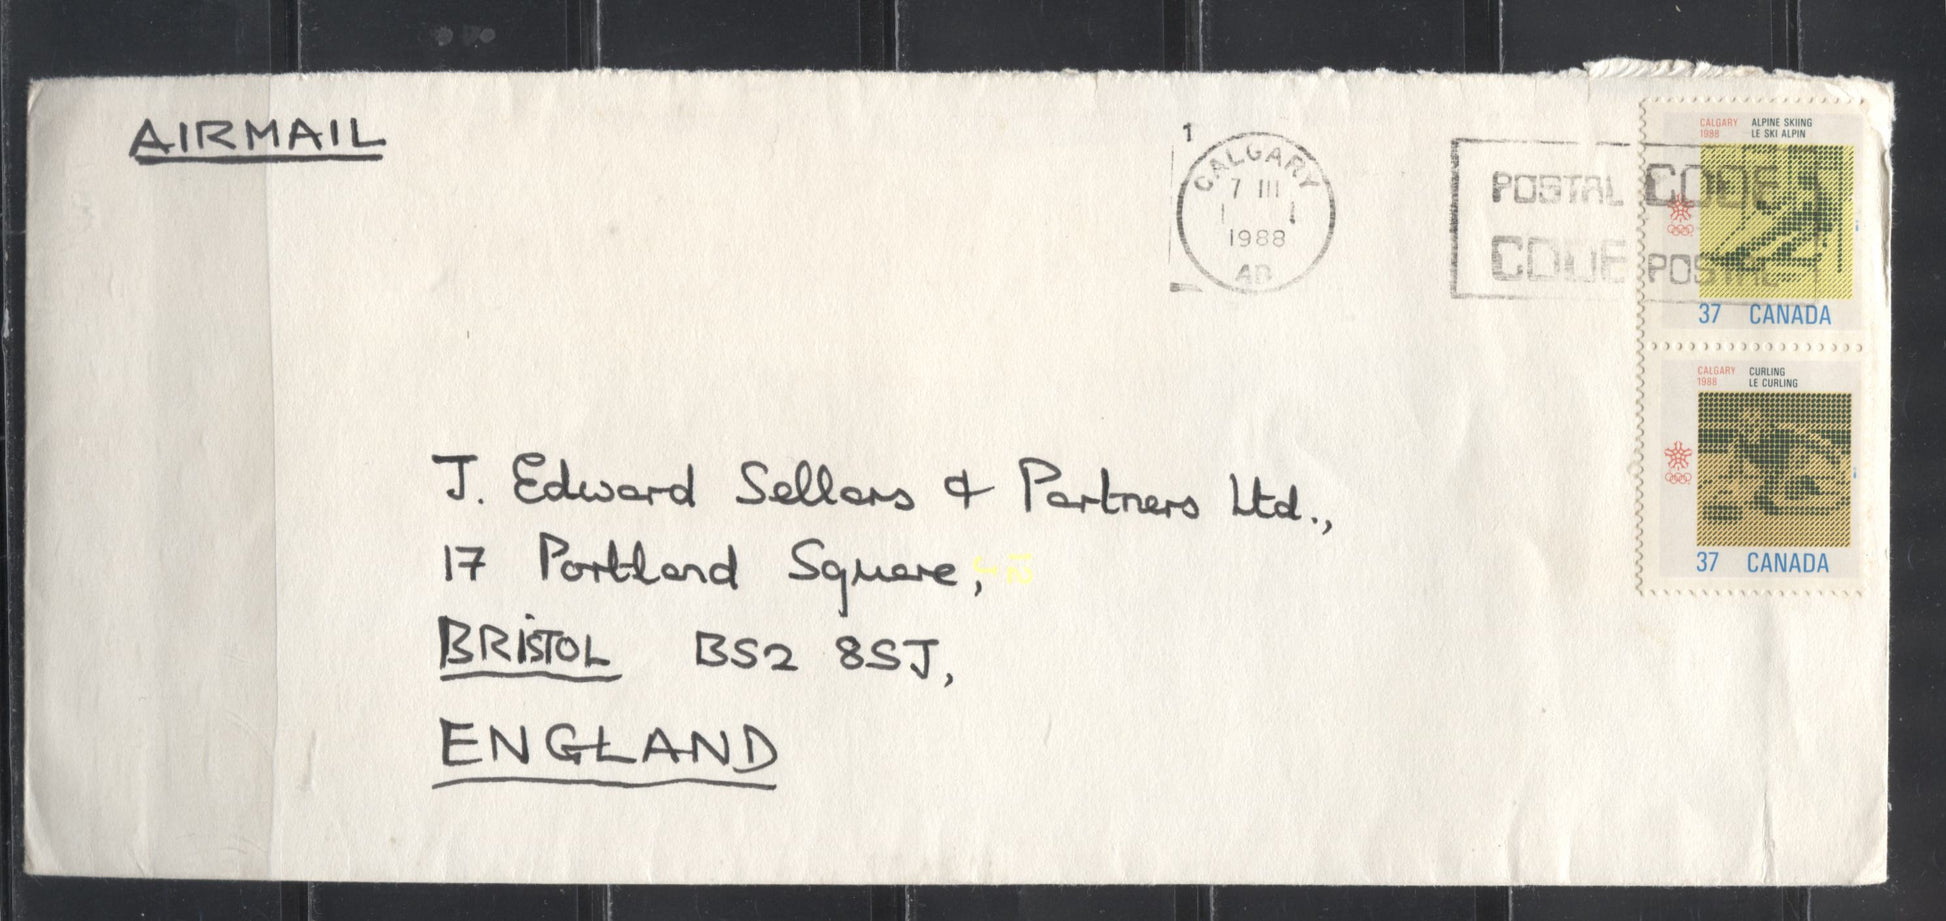 AIRMAIL
1
CALGARY
7 III
1988
AB
POSTAL CODE
CODE POSTAL
CALGARY 1988
ALPINE SKIING
LE SKI ALPIN
37 CANADA
CALGARY 1988
CURLING
LE CURLING
37 CANADA
J. Edward Sellars & Partners Ltd.,
17 Portland Square,
BRISTOL BS2 8SJ,
ENGLAND